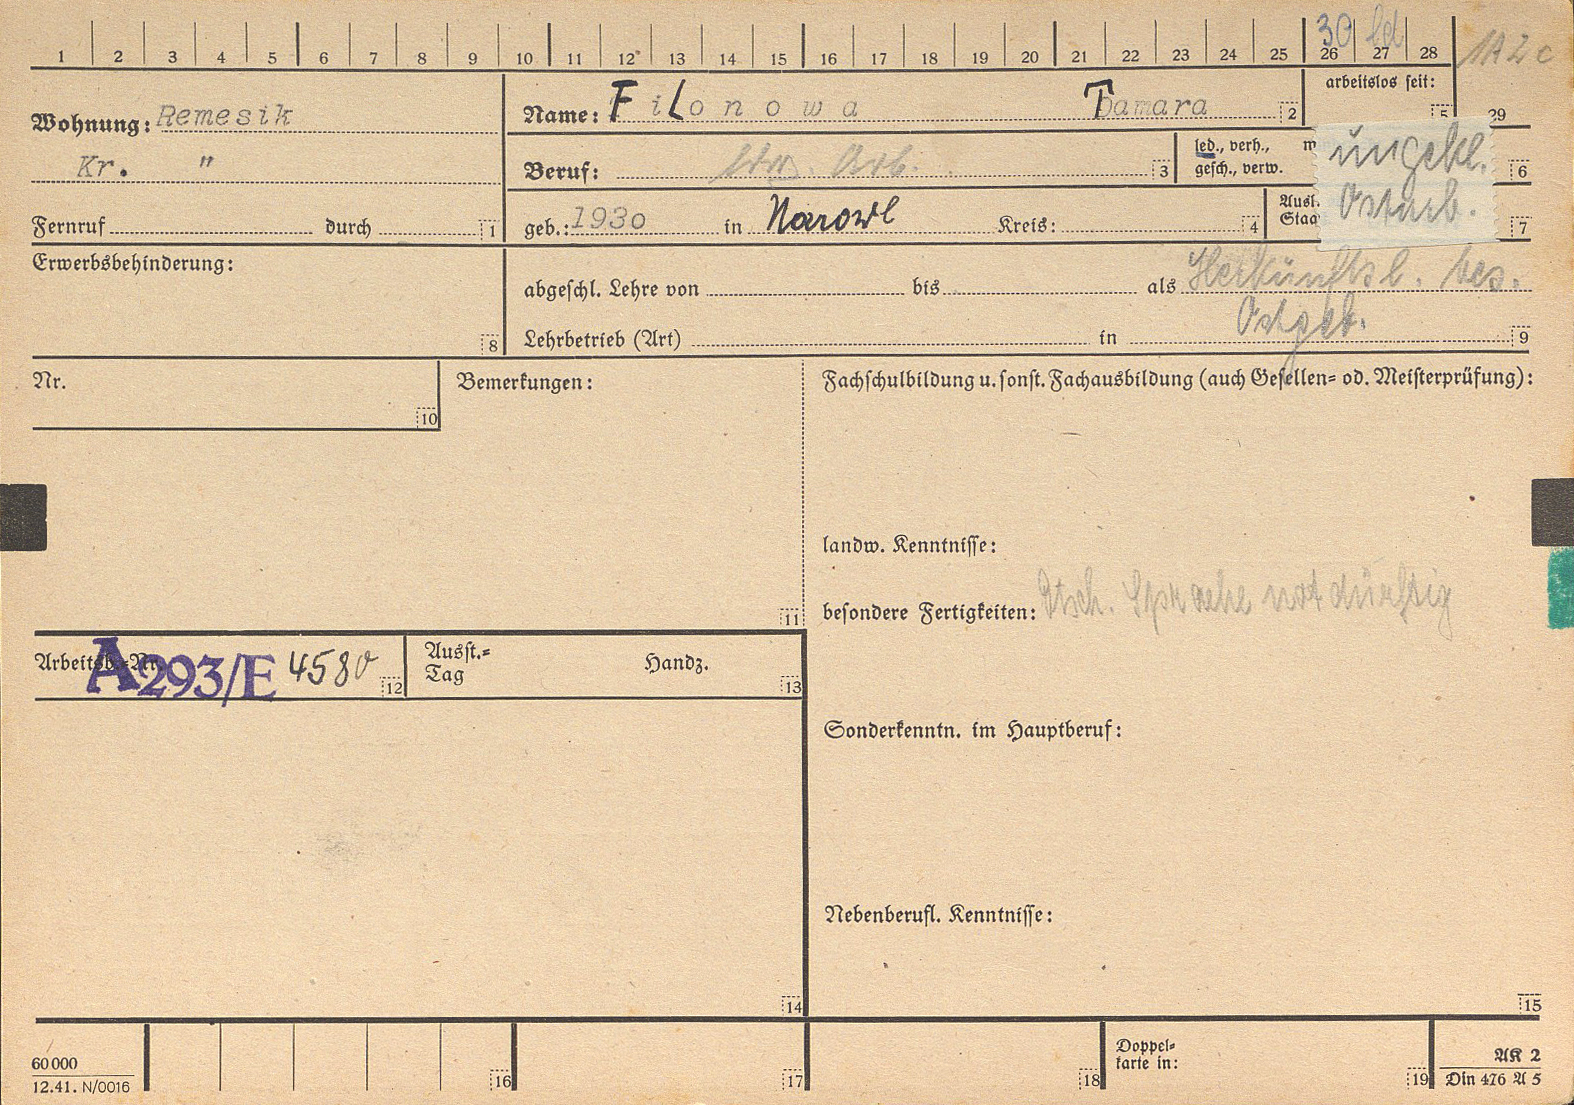 1 2 3 4 5 6 7 8 9 10 11 12 13 14 15 16 17 18 19 20 21 22 23 24 25 26 27 28 29
30 led
1A2c
Wohnung: Remesik
Kr. "
Fernruf durch 1
Name: Filonowa Tamara 2
arbeitslos seit: 5
Beruf: Arb. 3
led., verh.,
gesch., verw.
m
6
ungekl.
Ostarb.
geb.: 1930 in Narowl Kreis: 4
Ausl.
Staa
7
Erwerbsbehinderung: 8
abgeschl. Lehre von bis als Herkunftsl. bes.
Ostgeb.
Lehrbetrieb (Art) in 9
Nr. 10
Bemerkungen: 11
Fachschulbildung u. sonst. Fachausbildung (auch Gesellen- od. Meisterprüfung):
landw. Kenntnisse:
besondere Fertigkeiten: Dtsch. Sprache notdürftig
Arbeitsb.-Nr. A293/E 4580 12
Ausst.-
Tag
Handz. 13
Sonderkenntn. im Hauptberuf:
Nebenberufl. Kenntnisse:
14
15
60000
12.41. N/0016
16
17
18
Doppel-
karte in:
19
AK 2
Din 476 A 5